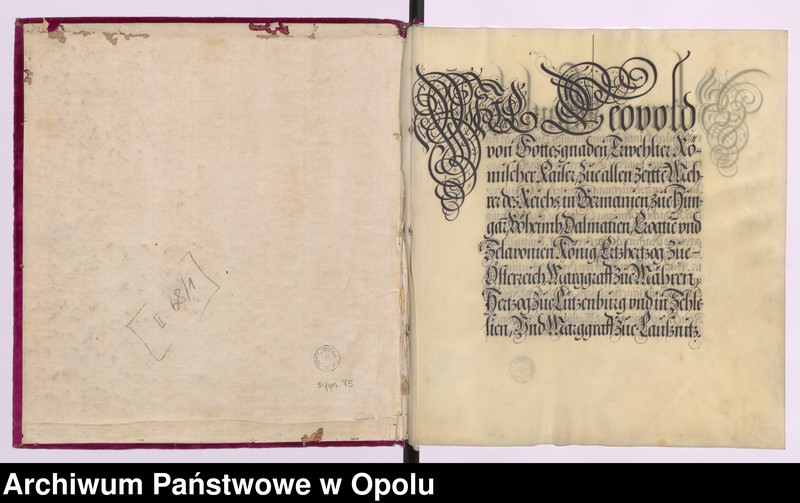 II. 68/1
sygn. 75
Wir Leopold
von Gottesgnaden Erwehlter Rö-
mischer Kaiser, zue allen Zeitte Meh-
rer des Reichs in Germanien, zue Hun-
garn, Böheimb, Dalmatien, Croatien vnd
Sclavonien König, Ertzhertzog zue
Österreich, Marggraff zue Mähren,
Hertzog zue Lützenburg vnd in Schle-
sien, Vnd Marggraff zue Laußnitz.
Archiwum Państwowe w Opolu